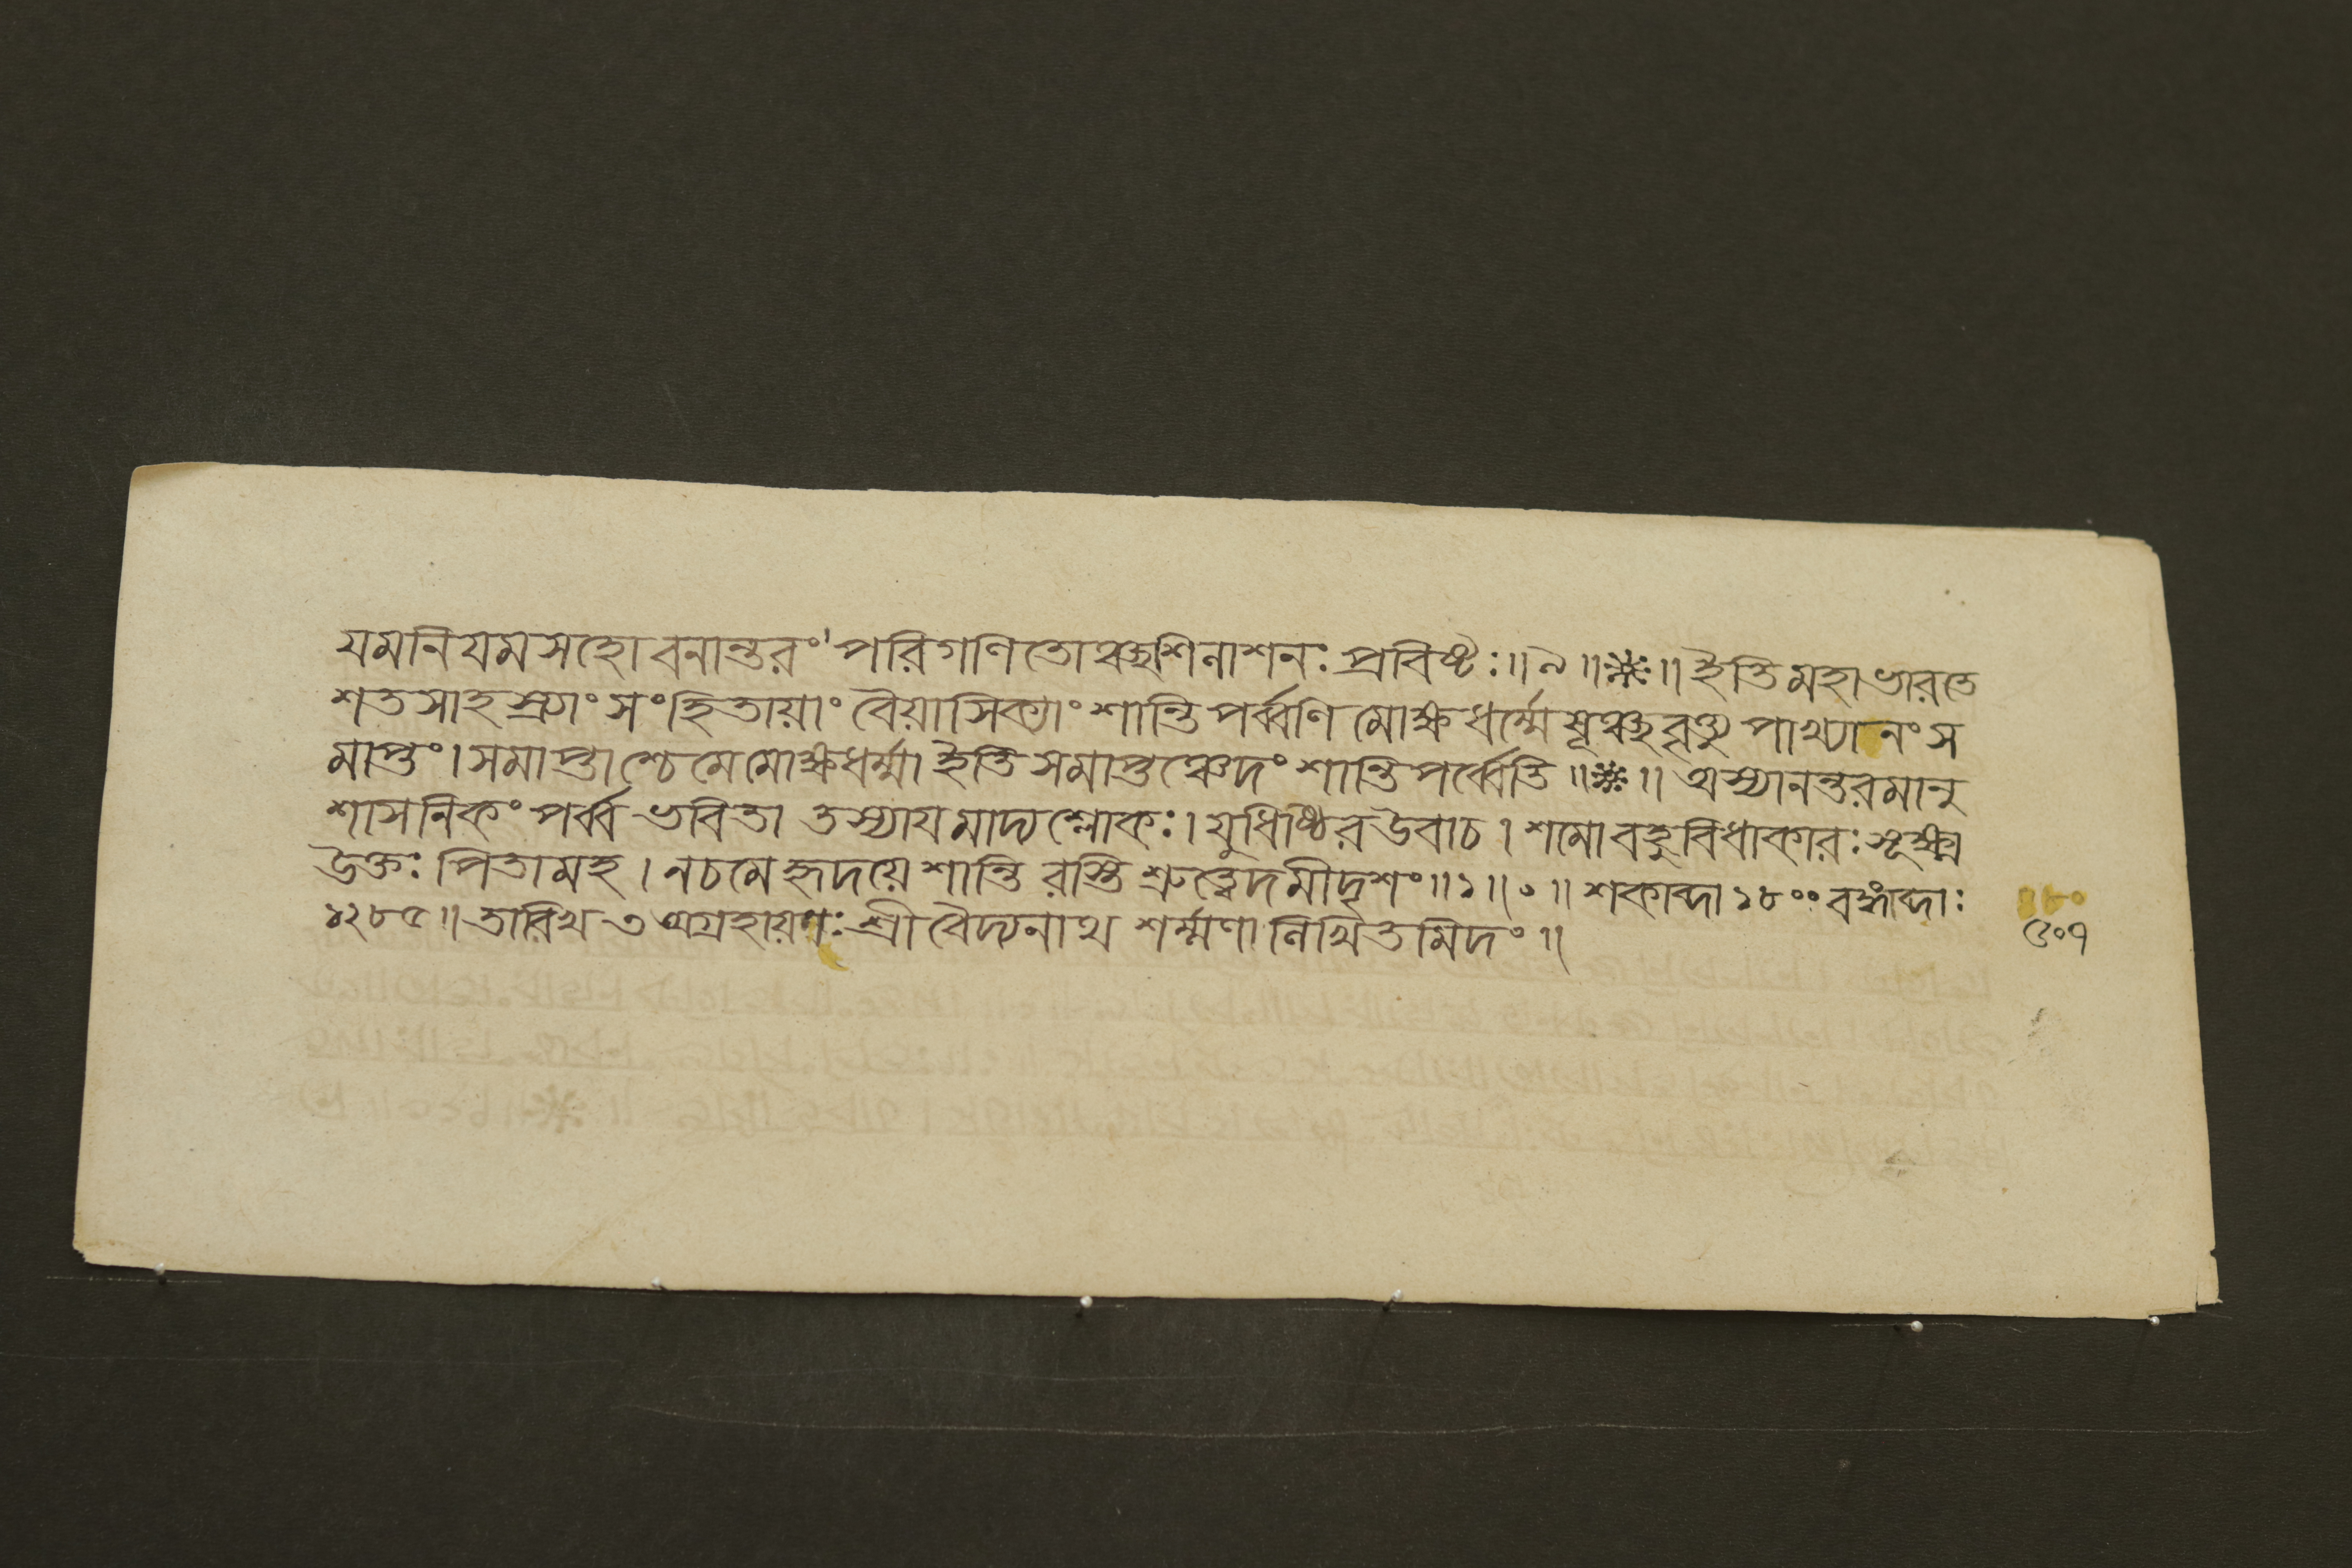 যমনিয়মসহো বনান্তরং পরিগণিতোঞ্ছশিনাশনঃ প্রবিষ্টঃ॥৯॥※॥ইতি মহাভারতে
শতসাহস্র্যাং সংহিতায়াং বৈয়াসিক্যাং শান্তিপর্ব্বণি মোক্ষধর্ম্মে ষূঞ্ছবৃত্ত্যুপাখ্যানং স
মাপ্তং। সমাপ্তাশ্চেমে মোক্ষধর্ম্মা ইতি সমাপ্তঞ্চেদং শান্তিপর্ব্বেতি॥※॥ অস্যানন্তরমানু
শাসনিকং পর্ব্ব ভবিতা তস্যাযমাদ্যশ্লোকঃ। যুধিষ্ঠির উবাচ। শমো বহুবিধাকারঃ সূক্ষ্ম
উক্তঃ পিতামহ। ন চ মে হৃদয়ে শান্তিরস্তি শ্রুত্বেদমীদৃশং॥১॥০॥ শকাব্দা ১৮০০ বঙ্গাব্দাঃ
১২৮৫॥ তারিখ ৩ অগ্রহায়ণঃ শ্রী বৈদ্যনাথ শর্ম্মণা লিখিতমিদং॥
৫০৭